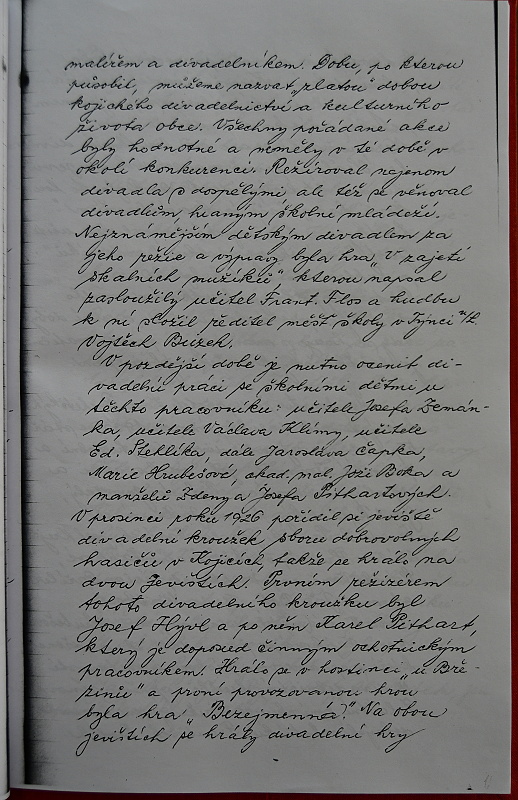 malířem a divadelníkem. Dobu, po kterou
působil, můžeme nazvat „zlatou" dobou
kojického divadelnictví a kulturního
života obce. Všechny pořádané akce
byly hodnotné a neměly v té době v
okolí konkurenci. Režíroval nejenom
divadla s dospělými ale též se věnoval
divadlům, hraným školní mládeží.
Nejznámějším dětským divadlem za
jeho režie a výpravy byla hra „V zajetí
skalních mužíků" kterou napsal
zasloužilý učitel Frant. Flos a hudbu
k ní složil ředitel měšť. školy v Týnci n/L.
Vojtěch Buzek.
V pozdější době je nutno ocenit di-
vadelní práci se školními dětmi u
těchto pracovníků: učitele Josefa Zemán-
ka, učitele Václava Klímy, učitele
Ed. Stehlíka, dále Jaroslava Čapka,
Marie Hrubešové, akad. mal. Joži Boka a
manželů Zdeny a Josefa Pithartových.
V prosinci roku 1926 pořídil si jeviště
divadelní kroužek sboru dobrovolných
hasičů v Kojicích, takže se hrálo na
dvou jevištích. Prvním režizérem
tohoto divadelního kroužku byl
Josef Hývl a po něm Karel Pithart,
který je doposud činným ochotnickým
pracovníkem. Hrálo se v hostinci „u Bře-
zinů" a první provozovanou hrou
byla hra „Bezejmenná". Na obou
jevištích se hrály divadelní hry